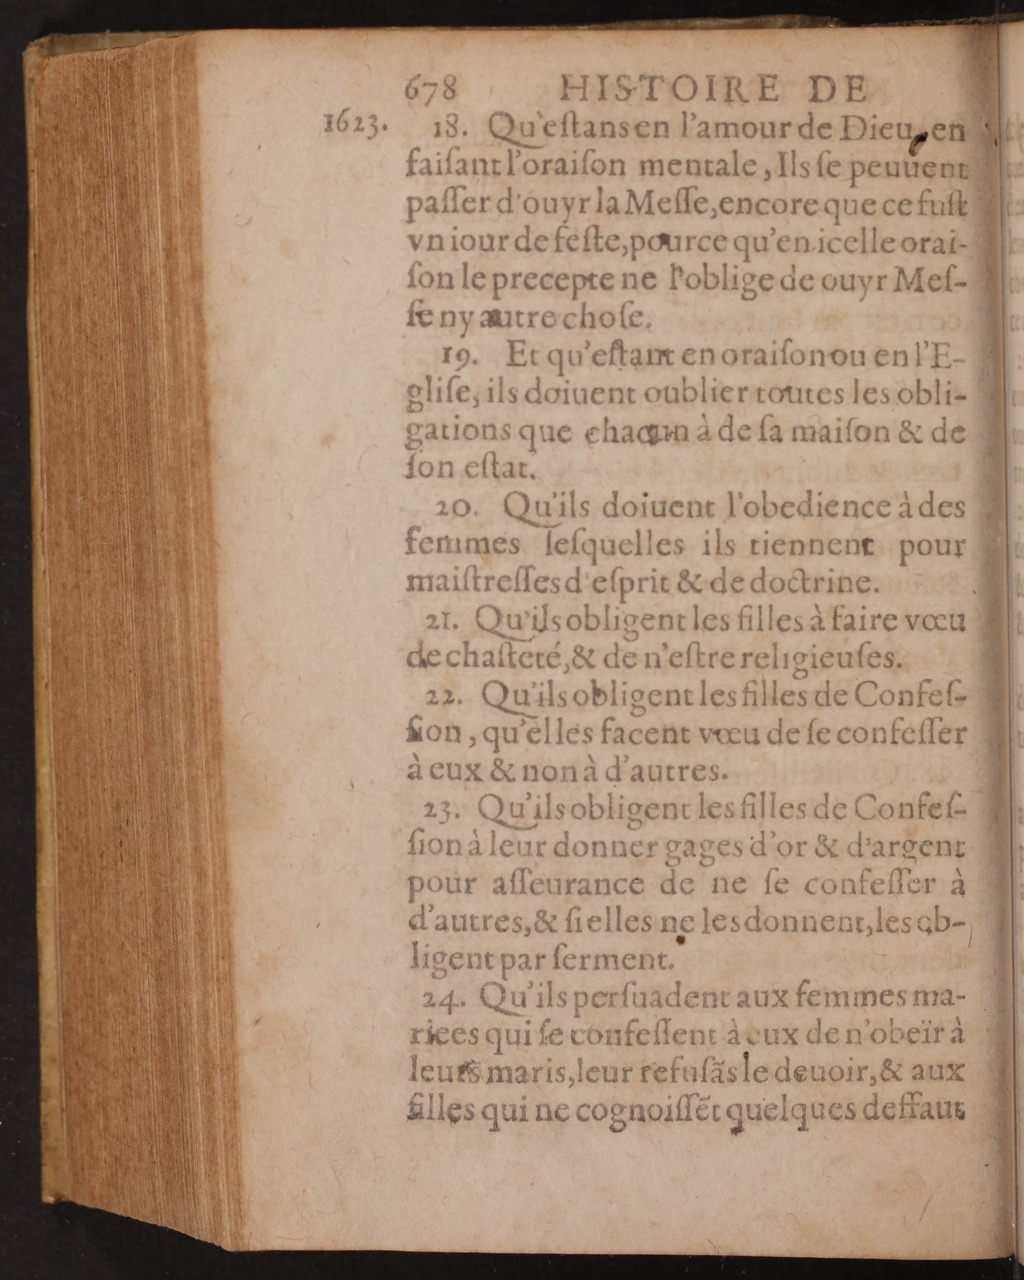 678 HISTOIRE DE
1623. 18. Qu'eſtans en l'amour de Dieu, en
faiſant l'oraiſon mentale, Ils ſe peuuent
paſſer d'ouyr la Meſſe, encore que ce fuſt
vn iour de feſte, pource qu'en icelle orai-
ſon le precepte ne l'oblige de ouyr Meſ-
ſe ny autre choſe.
19. Et qu'eſtant en oraiſon ou en l'E-
gliſe, ils doiuent oublier toutes les obli-
gations que chacun à de ſa maiſon & de
ſon eſtat.
20. Qu'ils doiuent l'obedience à des
femmes leſquelles ils tiennent pour
maiſtreſſes d'eſprit & de doctrine.
21. Qu'ils obligent les filles à faire vœu
de chaſteté, & de n'eſtre religieuſes.
22. Qu'ils obligent les filles de Confeſ-
ſion, qu'elles facent vœu de ſe confeſſer
à eux & non à d'autres.
23. Qu'ils obligent les filles de Confeſ-
ſion à leur donner gages d'or & d'argent
pour aſſeurance de ne ſe confeſſer à
d'autres, & ſi elles ne les donnent, les ob-
ligent par ſerment.
24. Qu'ils perſuadent aux femmes ma-
riees qui ſe confeſſent à eux de n'obeïr à
leurs maris, leur refuſãs le deuoir, & aux
filles qui ne cognoiſſẽt quelques deffaut